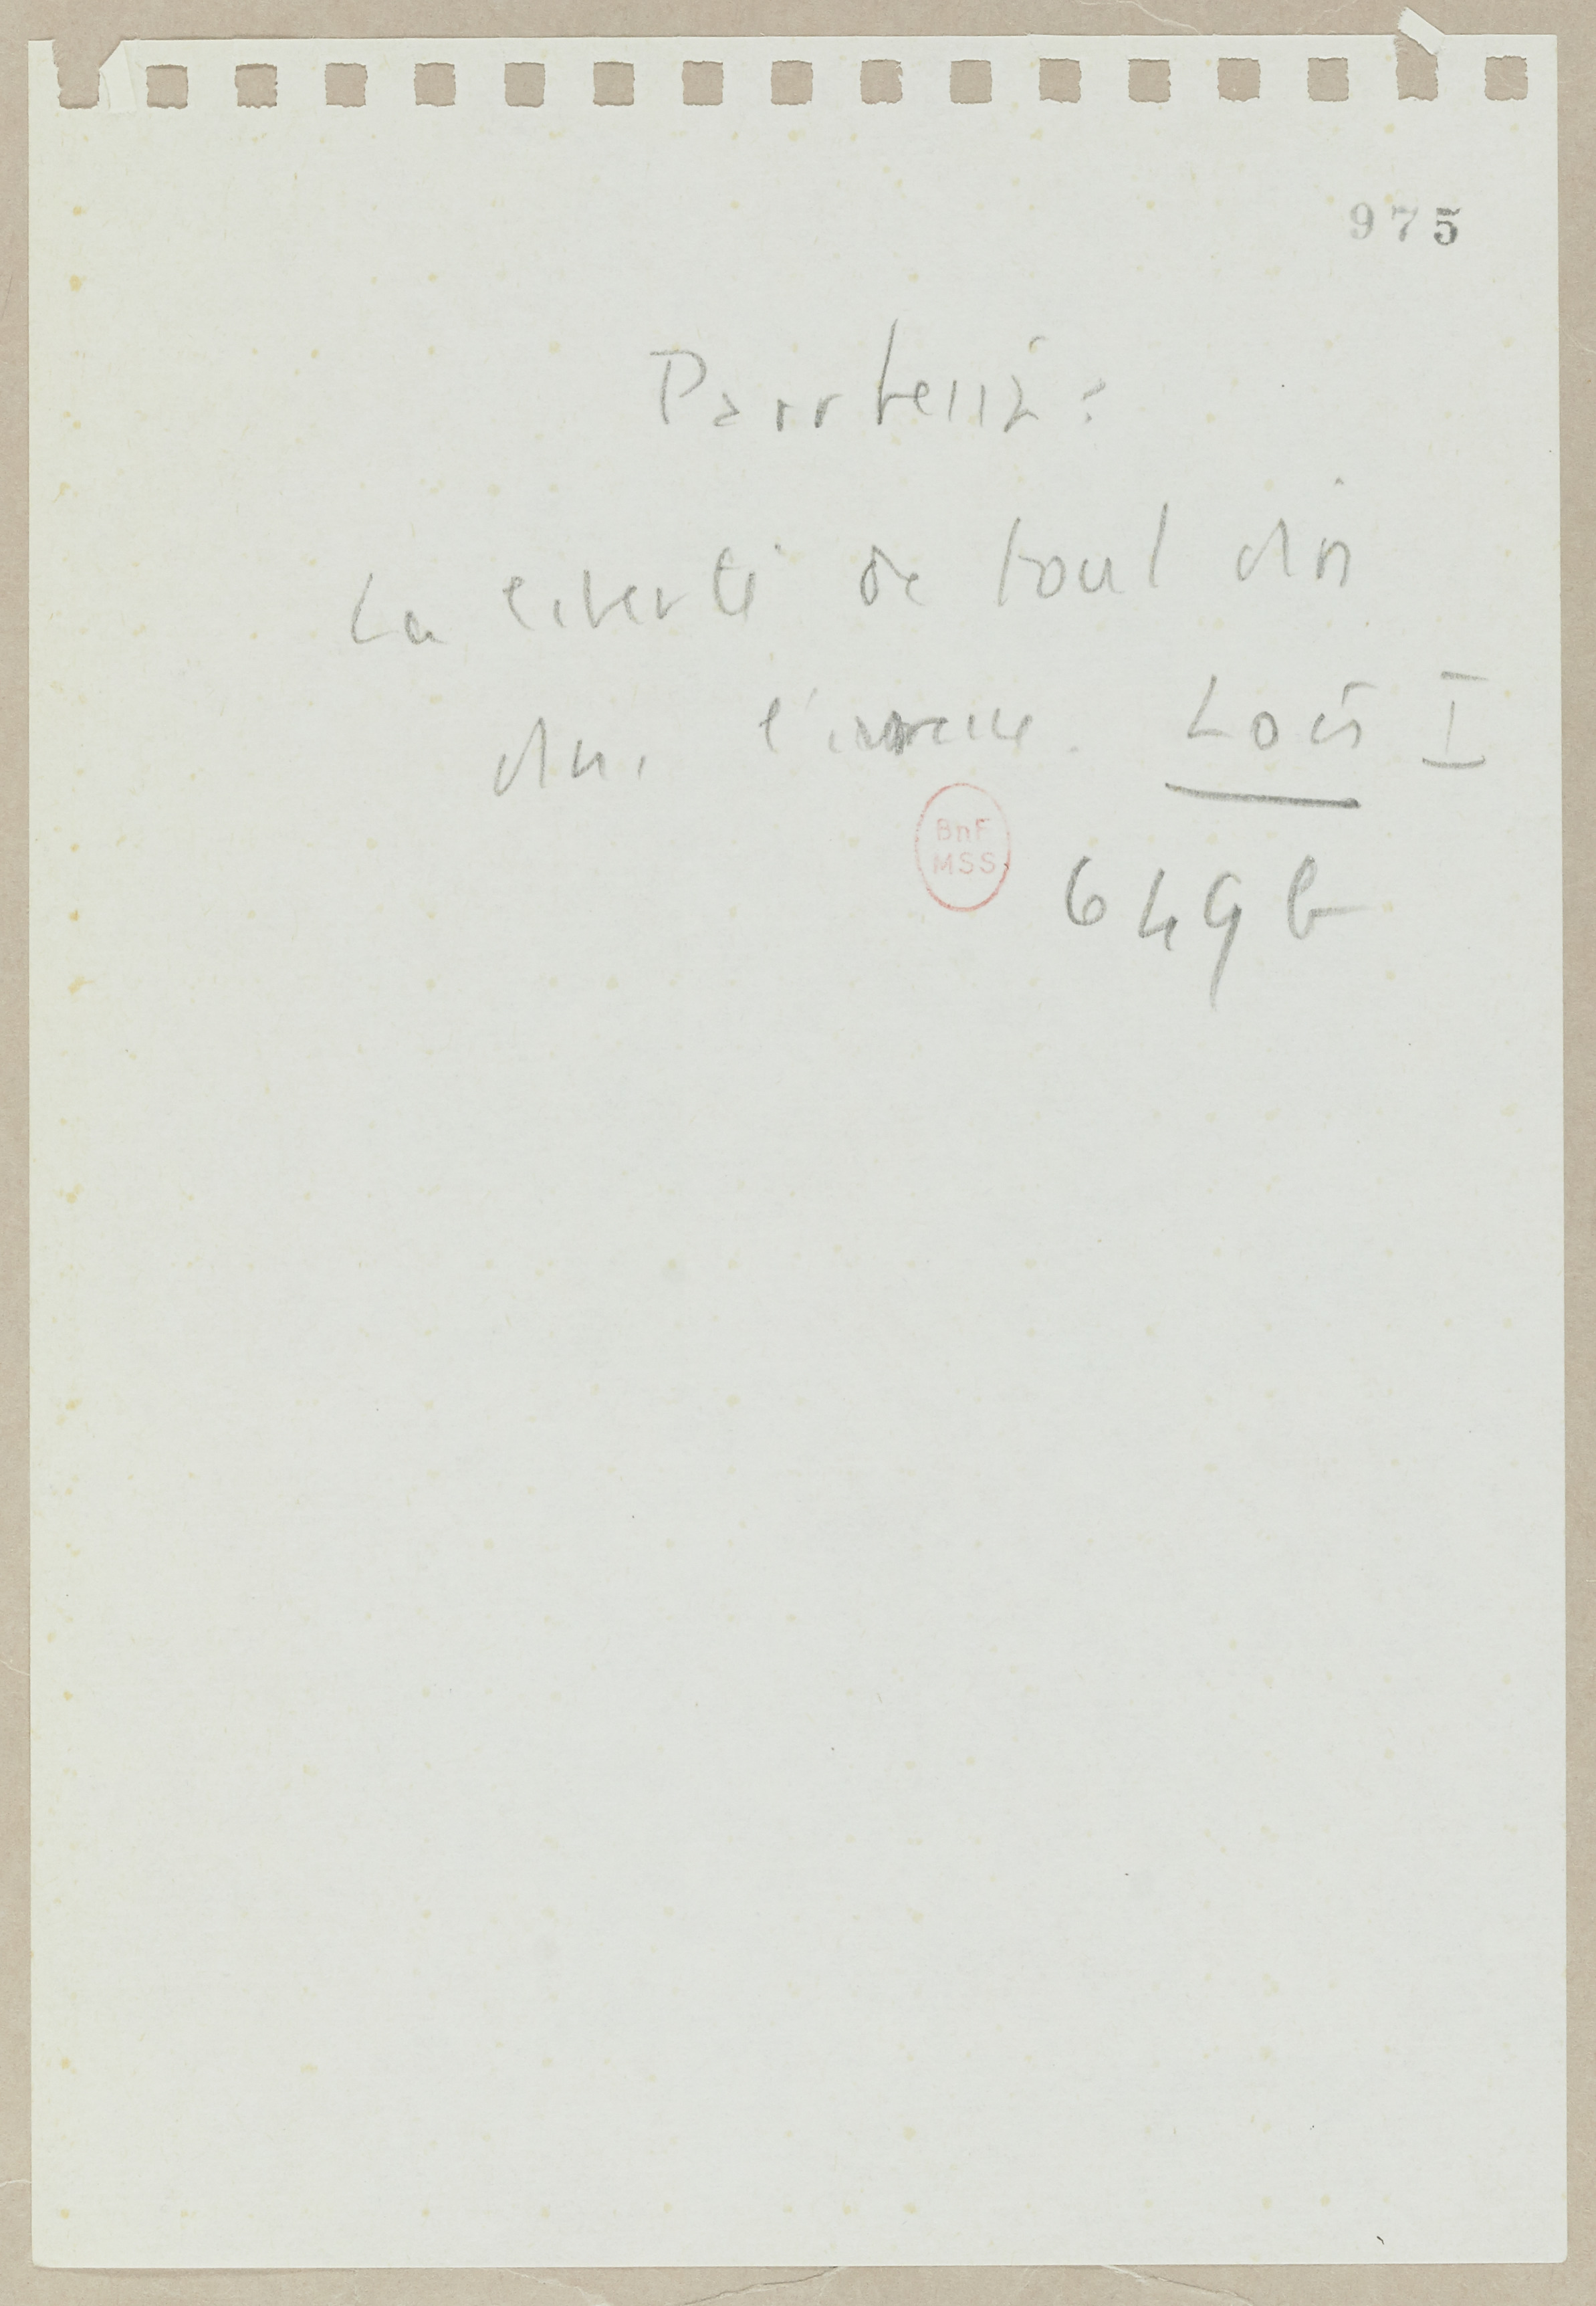 975
Parrhesia :
La liberté de tout dire
dans l'ivresse. Lois I
BnF
MSS
649 b